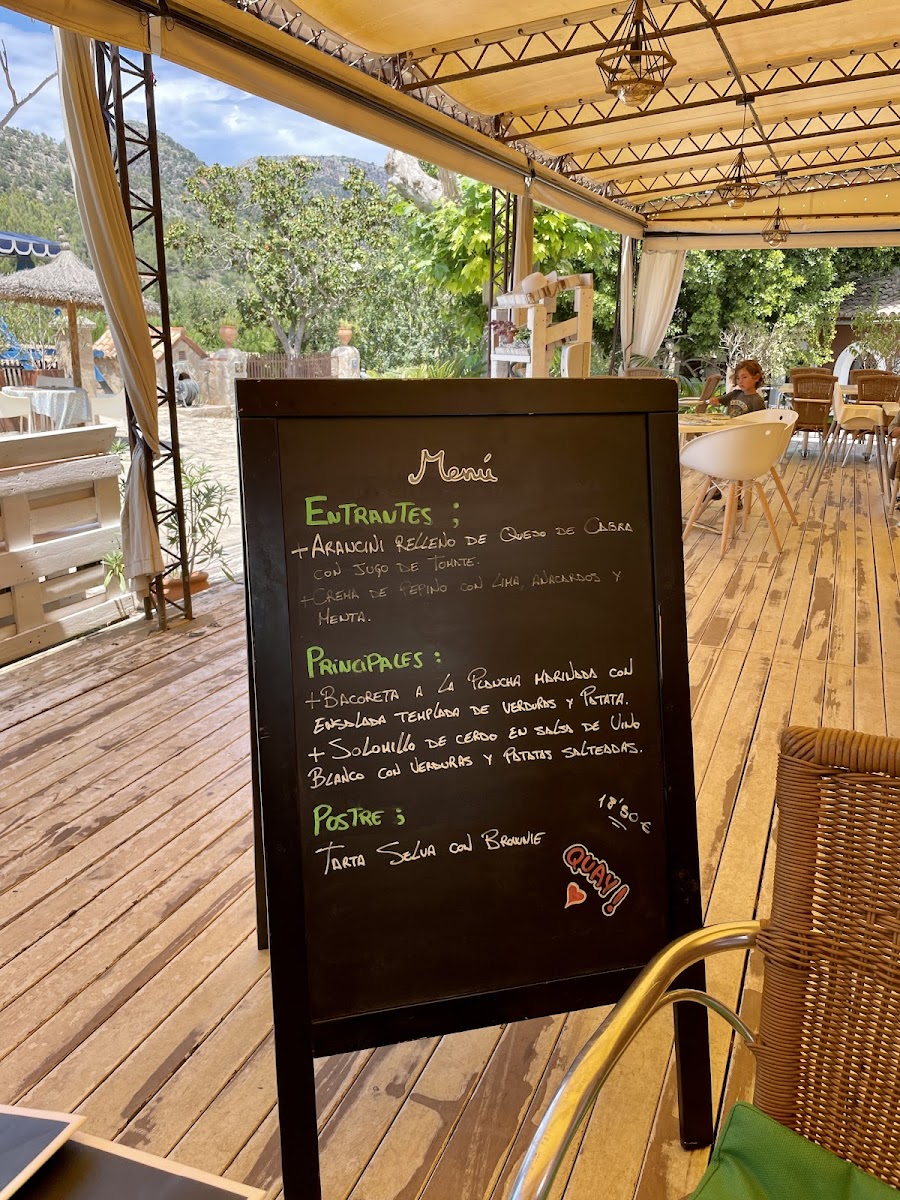 Menú
ENTRANTES ;
+ ARANCINI RELLENO DE QUESO DE CABRA
CON JUGO DE TOMATE.
+ CREMA DE PEPINO CON LIMA, ANACARDOS Y
MENTA.
PRINCIPALES :
+ BACORETA A LA PLANCHA MARINADA CON
ENSALADA TEMPLADA DE VERDURAS Y PATATA.
+ SOLOMILLO DE CERDO EN SALSA DE VINO
BLANCO CON VERDURAS Y PATATAS SALTEADAS.
18'80 €
POSTRE ;
TARTA SELVA CON BROWNIE
QUAY!